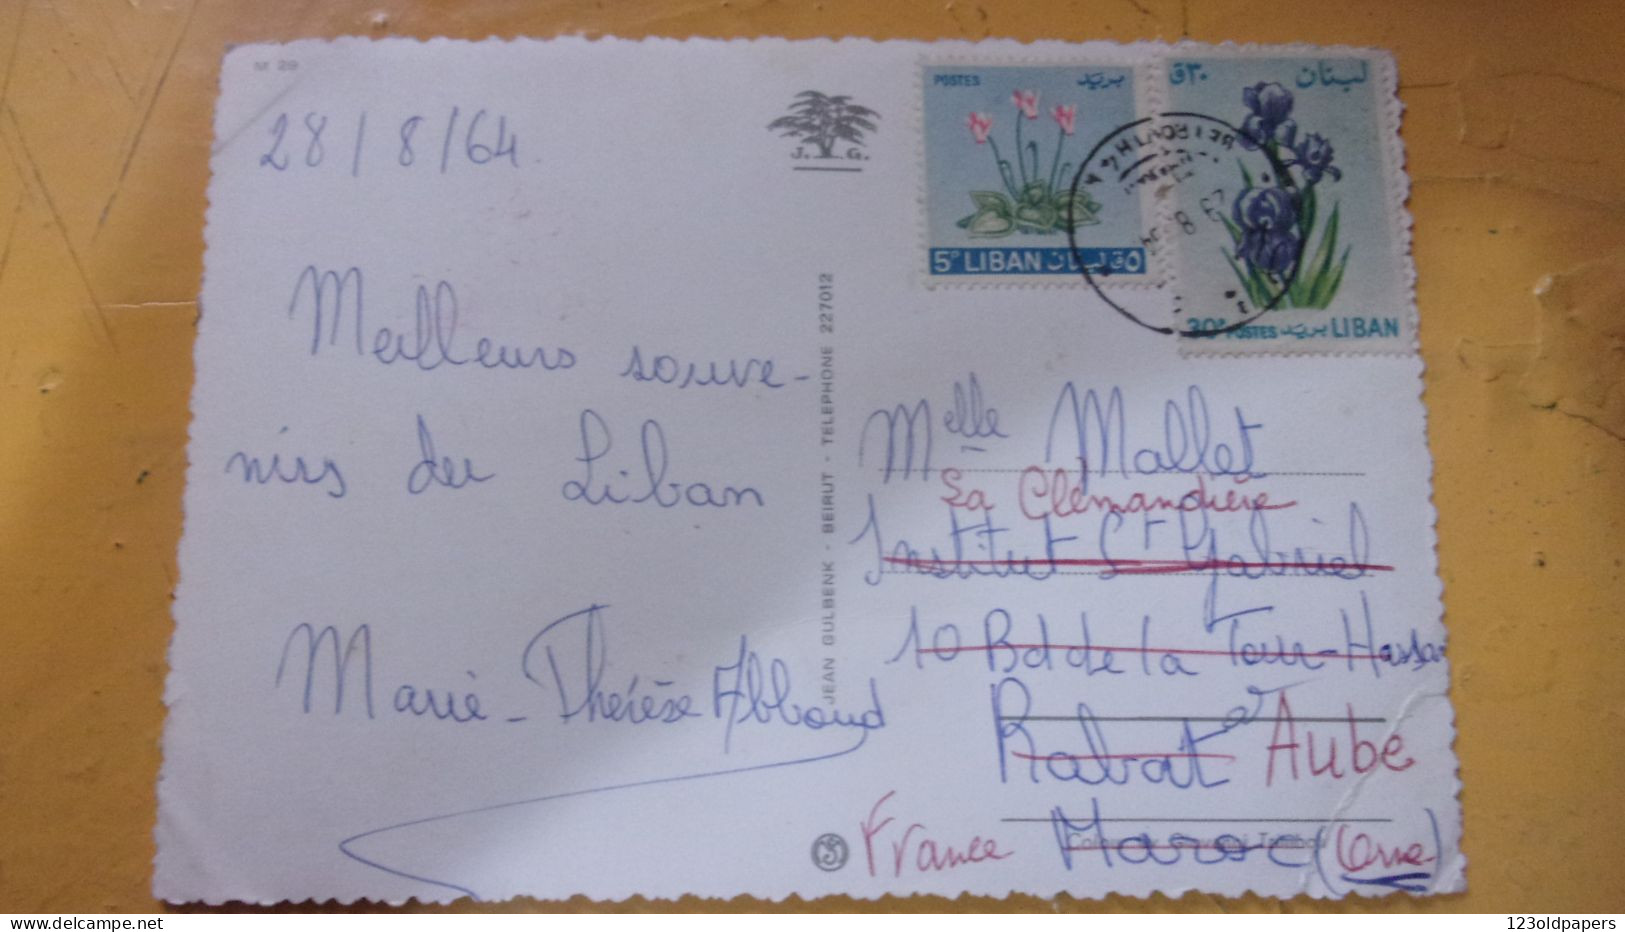 M 29
28/8/64
J. G.
Meilleurs souve-
nirs du Liban
Marie-Thérèse Abboud
JEAN GULBENK - BEIRUT - TELEPHONE 227012
POSTES بريد
5P LIBAN لبنان ٥ق
٣٠ق لبنان
30P POSTES بريد LIBAN
BEYROUTH
Melle Mallet
La Clémandière
Institut St Gabriel
10 Bd de la Tour-Hassan
Rabat à AUBE
France Maroc (Orne)
123oldpapers